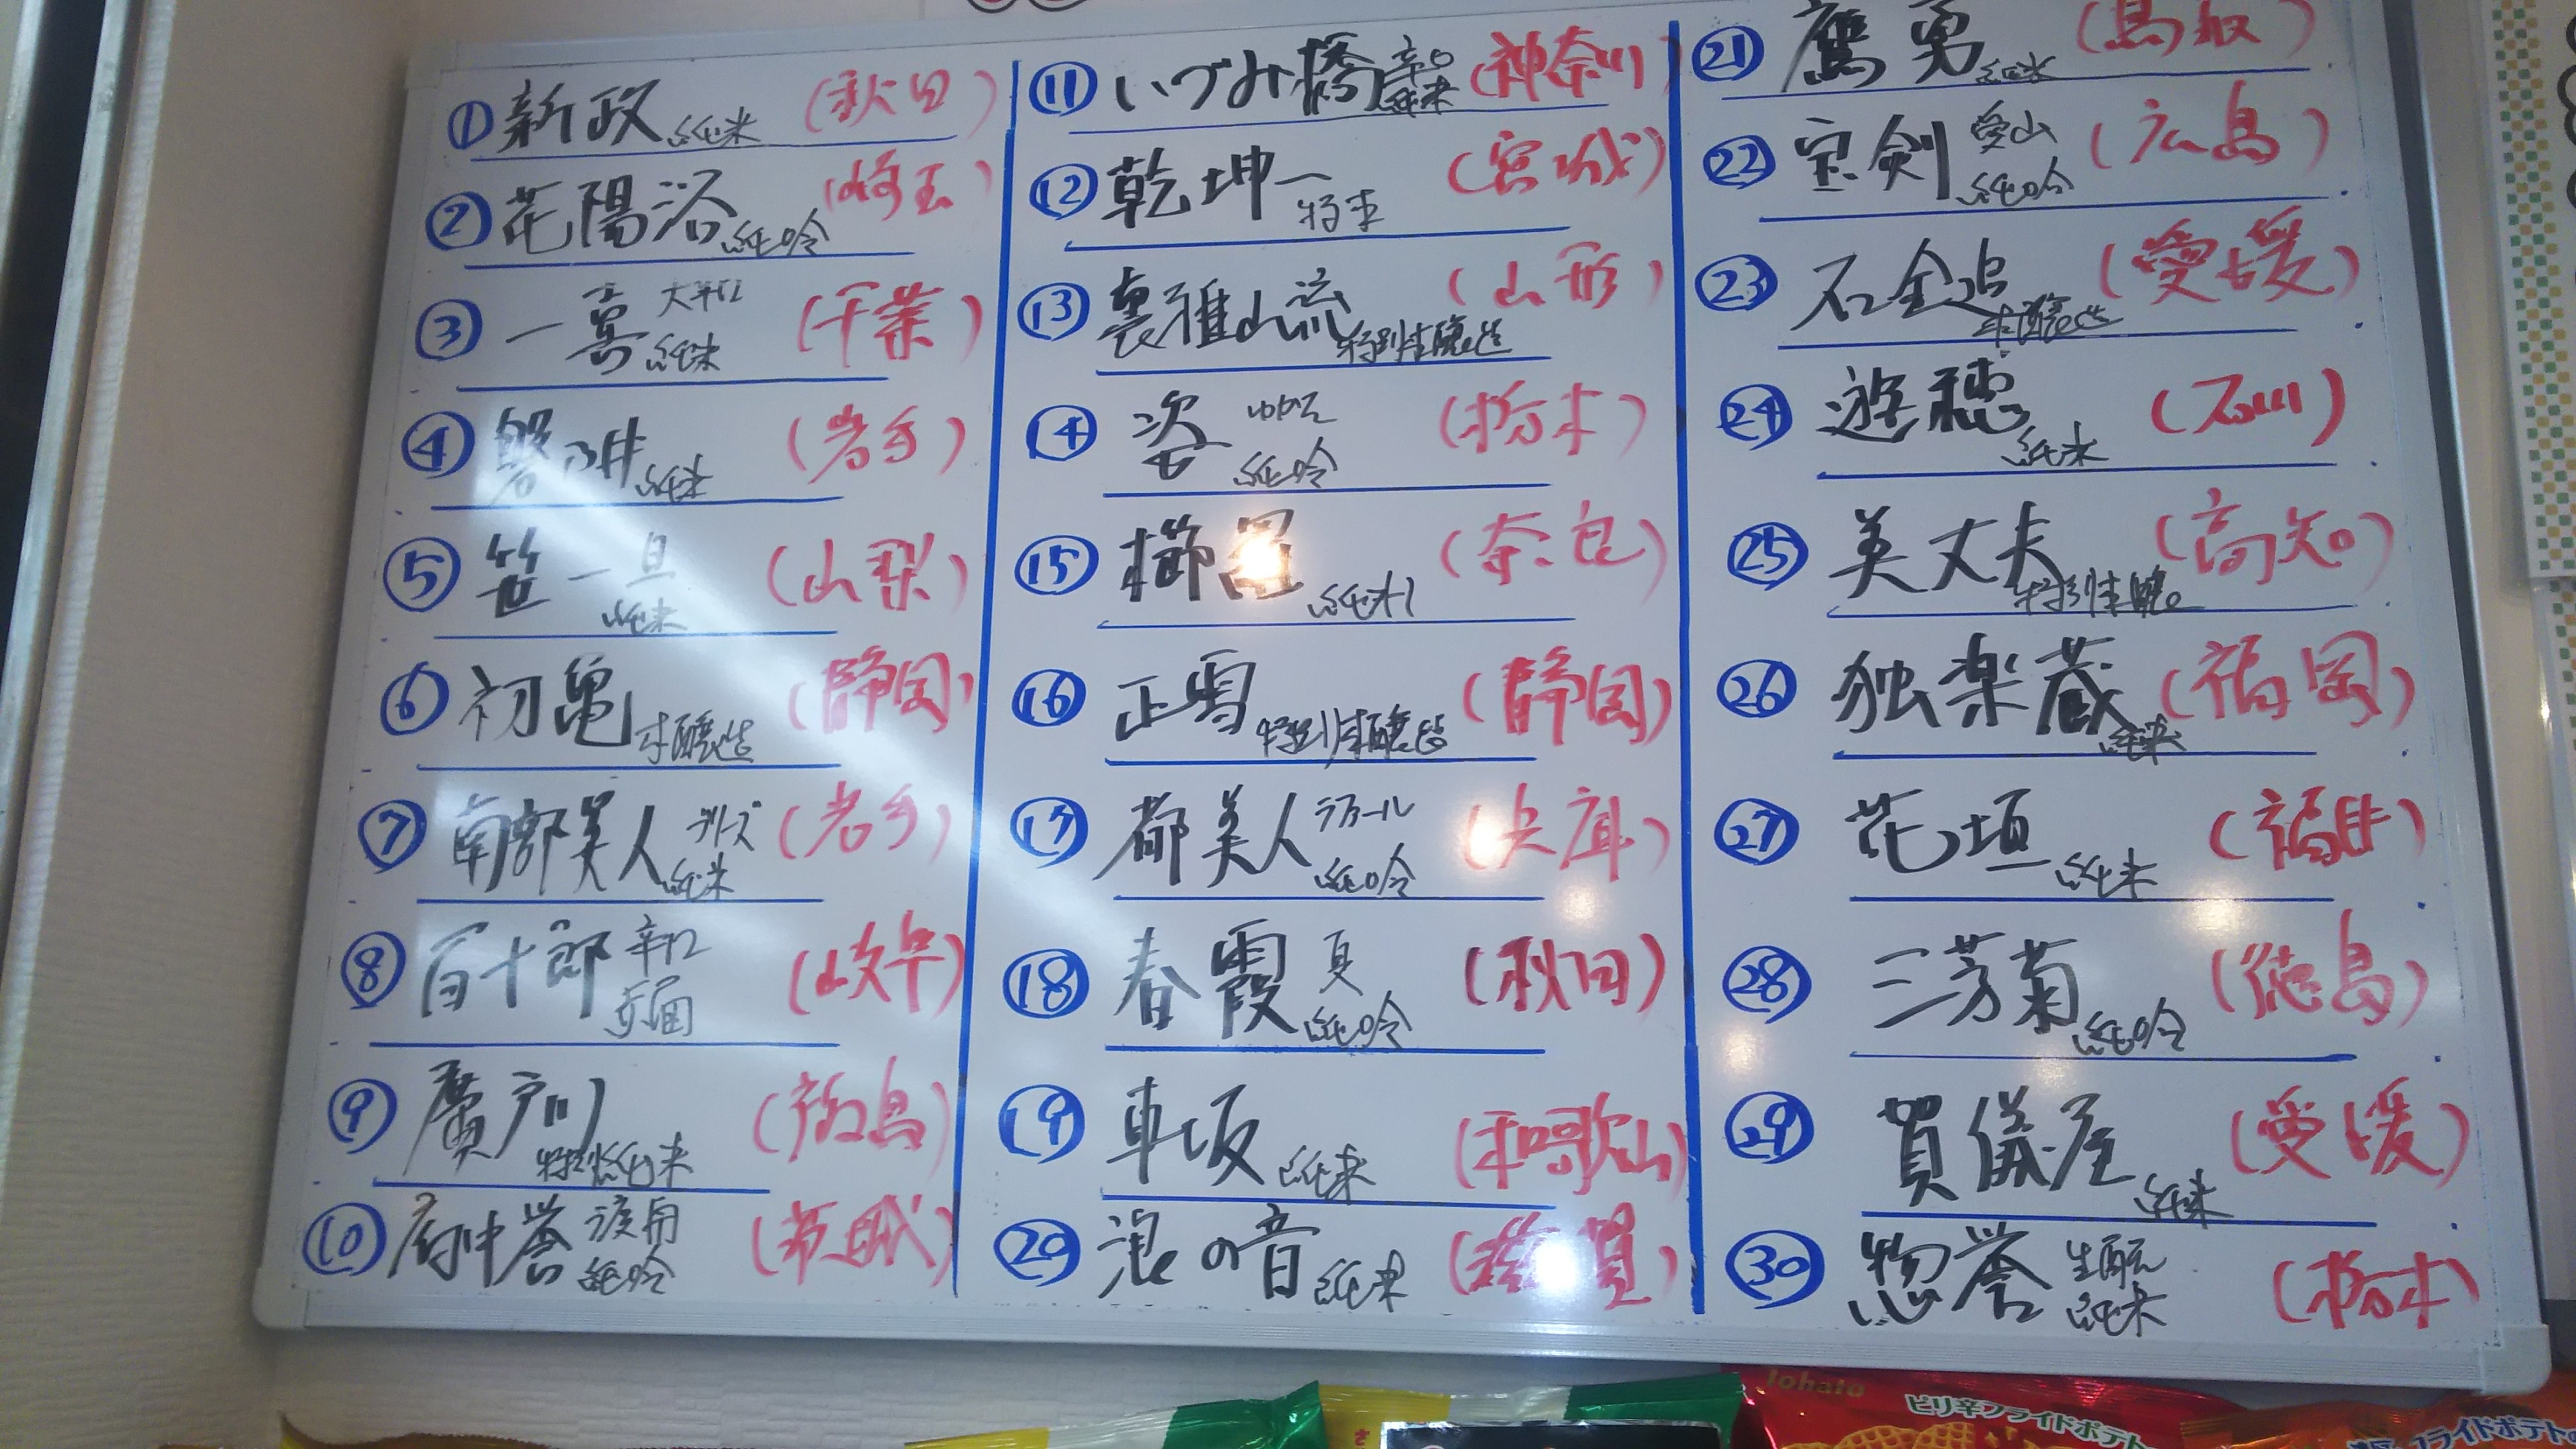 ① 新政 純米 (秋田)
② 花陽浴 純吟 (崎玉)
③ 一喜 大辛口 純米 (千葉)
④ 磐乃井 純米 (岩手)
⑤ 笹一 旦 純米 (山梨)
⑥ 初亀 本醸造 (静岡)
⑦ 南部美人 ブリーズ 純米 (岩手)
⑧ 百十郎 辛口 赤面 (岐阜)
⑨ 廣戸川 特別純米 (福島)
⑩ 府中誉 渡舟 純吟 (茨城)
⑪ いづみ橋 辛口 純米 (神奈川)
⑫ 乾坤一 特本 (宮城)
⑬ 裏雅山流 特別本醸造 (山形)
⑭ 姿 純吟 (栃木)
⑮ 櫛羅 純米 (奈良)
⑯ 正雪 特別本醸造 (静岡)
⑰ 都美人 純吟 (兵庫)
⑱ 春霞 夏 純吟 (秋田)
⑲ 車坂 純米 (和歌山)
⑳ 浪の音 純米 (滋賀)
㉑ 鷹勇 純米 (鳥取)
㉒ 宝剣 愛山 純吟 (広島)
㉓ 石鎚 本醸造 (愛媛)
㉔ 遊穂 純米 (石川)
㉕ 美丈夫 特別本醸 (高知)
㉖ 独楽蔵 純米 (福岡)
㉗ 花垣 純米 (福井)
㉘ 三芳菊 純吟 (徳島)
㉙ 賀儀屋 純米 (愛媛)
㉚ 惣誉 生酛 純米 (栃木)
tohato
ピリ辛フライドポテト
フライドポテト